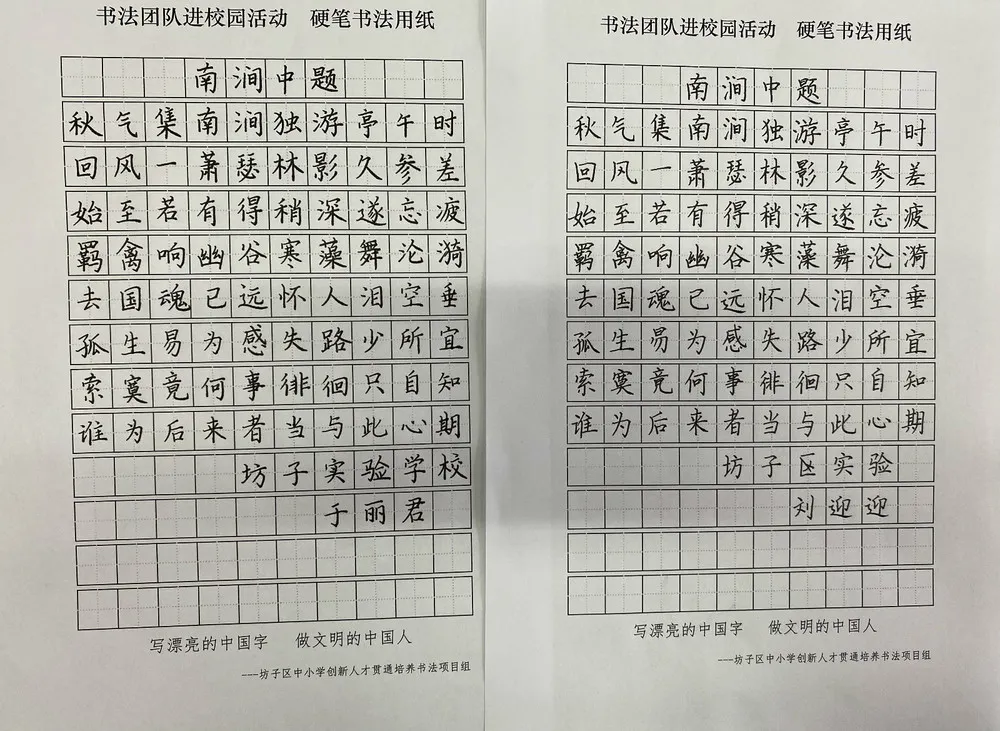 书法团队进校园活动 硬笔书法用纸
南涧中题
秋气集南涧独游亭午时
回风一萧瑟林影久参差
始至若有得稍深遂忘疲
羁禽响幽谷寒藻舞沦漪
去国魂已远怀人泪空垂
孤生易为感失路少所宜
索寞竟何事徘徊只自知
谁为后来者当与此心期
坊子实验学校
于丽君
写漂亮的中国字 做文明的中国人
---坊子区中小学创新人才贯通培养书法项目组
书法团队进校园活动 硬笔书法用纸
南涧中题
秋气集南涧独游亭午时
回风一萧瑟林影久参差
始至若有得稍深遂忘疲
羁禽响幽谷寒藻舞沦漪
去国魂已远怀人泪空垂
孤生易为感失路少所宜
索寞竟何事徘徊只自知
谁为后来者当与此心期
坊子区实验
刘迎迎
写漂亮的中国字 做文明的中国人
---坊子区中小学创新人才贯通培养书法项目组